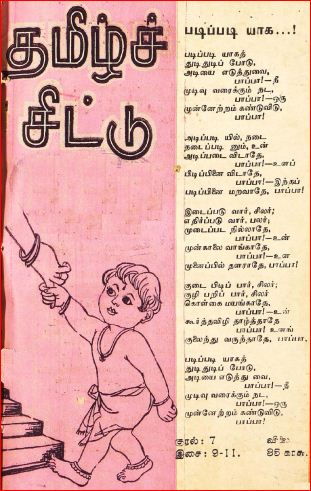 தமிழ்ச்
சிட்டு
படிப்படி யாக...!
படிப்படி யாகத்
துடிதுடிப் போடு,
அடியை எடுத்துவை,
பாப்பா!—நீ
முடிவு வரைக்கும் நட,
பாப்பா!—ஒரு
முன்னேற்றம் கண்டுவிடு,
பாப்பா!
அடிப்படி யில், நடை
நடைப்படி னும், உன்
அடிப்படை விடாதே,
பாப்பா!—உனப்
பீடிப்பினை விடாதே,
பாப்பா!—இற்கப்
படிப்பினை மறவாதே, பாப்பா!
இடைப்படு வார், சிலர்;
எதிர்ப்படு வார், பலர்;
முடைப்பட நில்லாதே,
பாப்பா!—உன்
முன்காலை வாங்காதே,
பாப்பா!—உன
முனைப்பில் தளராதே, பாப்பா!
குடை பிடிப் பார், சிலர்;
குழி பறிப் பார், சிலர்
கொள்கை மயங்காதே,
பாப்பா!—உன்
கூர்த்தவிழி தாழ்த்தாதே
பாப்பா! உளங்
குலைந்து வருந்தாதே, பாப்பா.
படிப்படி யாகத்
துடிதுடிப் போடு,
அடியை எடுத்து வை,
பாப்பா!—நீ
முடிவு வரைக்கும் நட,
பாப்பா!—ஒரு
முன்னேற்றம் கண்டுவிடு,
பாப்பா!
குரல்: 7
இசை: 9-11. 85 காசு.